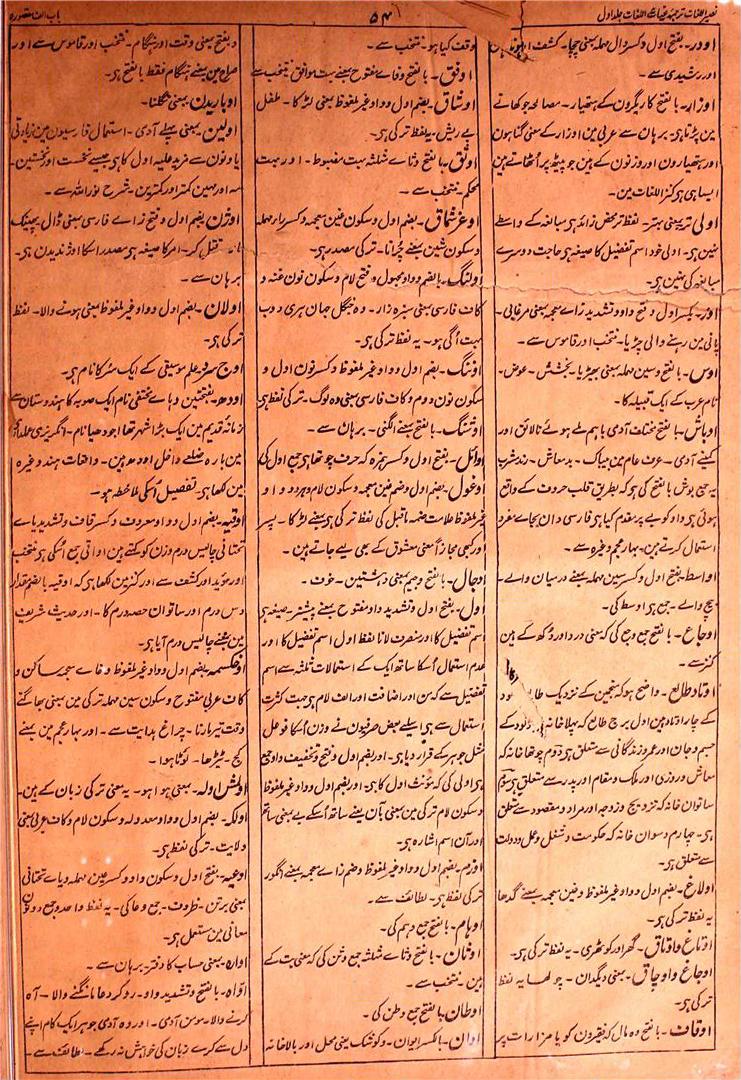 نصیر اللغات ترجمہ غیاث اللغات جلد اول
۵۴
باب الف مقصورہ
اودر۔ بفتح اول و کسر دال مہملہ بمعنی چچا۔ کشف
اور رشیدی سے۔
اوزار۔ بالفتح کاریگرون کے ہتھیار۔ مصالحہ جو کھانے
مین پڑتا ہی۔ برہان سے عربی مین اوزار کے معنی گناہون
اور ہتھیارون اور وزنون کے ہین جو پیٹھ پر اُٹھاتے ہین
ایسا ہی ہر کنز اللغات مین۔
اولی تر بمعنی بہتر۔ لفظ تر محض زائد ہی مبالغہ کے واسطے
نہین ہی۔ اولی خود اسم تفضیل کا صیغہ ہی حاجت دوسرے
مبالغہ کی نہین ہی۔
اوز۔ بکسر اول و فتح واو و تشدید زاے معجمہ بمعنی مرغابی۔
پانی مین رہنے والی چڑیا۔ منتخب اور قاموس سے۔
اوس۔ بالفتح و سین مہملہ بمعنی بھیڑیا۔ بخشش۔ عوض۔
نام عرب کے ایک قبیلہ کا۔
اوباش۔ بالفتح مختلف آدمی باہم ملے ہوئے نالائق اور
کمینے آدمی۔ عرف عام مین بیباک۔ بدمعاش۔ رند مشرب
یہ جمع بوش بالفتح کی ہو کہ بطریق قلب حروف کے واقع
ہوئی ہی واو کو بے پر مقدم کیا ہی فارسی دان بجاے مفرد
استعمال کرتے ہین۔ بہار عجم وغیرہ سے۔
اواسط۔ بفتح اول و کسر سین مہملہ بمعنی درمیان والے۔
بیچ والے۔ جمع ہی اوسط کی۔
اوجاع۔ بالفتح جمع وجع کی کہ معنی درد اور دکھ کے ہین
کنز سے۔
اوتاد طالع۔ واضح ہو کہ منجمین کے نزدیک طالع
کے چار اوتاد ہین اول برج طالع کہ پہلا خانہ
جسم و جان اور عمر و زندگانی سے متعلق ہی دوم چوتھا خانہ کہ
معاش و روزی اور ملک و مقام اور پدر سے متعلق ہی سوم
ساتوان خانہ کہ تزویج و زوجہ اور مراد و مقصود سے متعلق
ہی۔ چہارم دسوان خانہ کہ حکومت و شغل و عمل و دولت
سے متعلق ہی۔
اولاغ۔ بضم اول و واو غیر ملفوظ و غین معجمہ بمعنی گدھا
یہ لفظ ترکی ہی۔
اوتاغ و اوتاق۔ گھر اور کوٹھری۔ یہ لفظ ترکی ہی۔
اوجاغ و اوجاق۔ بمعنی دیگدان۔ چولھا یہ لفظ
ترکی ہی۔
اوقاف۔ بالفتح وہ مال کہ فقیرون کو یا مزارات پر
وقف کیا ہو۔ منتخب سے۔
اوفق۔ بالفتح و فاے مفتوح بمعنی بہت موافق منتخب سے
اوشاق۔ بضم اول و واو غیر ملفوظ بمعنی لڑکا۔ طفل
بے ریش۔ یہ لفظ ترکی ہی۔
اوثق۔ بالفتح و ثاے مثلثہ بہت مضبوط۔ اور بہت
محکم۔ منتخب سے۔
اوغرشماق۔ بضم اول و سکون غین معجمہ و کسر راء مہملہ
و سکون شین بمعنی چُرانا۔ ترکی مصدر ہی۔
اولنگ۔ بالضم و واو مجہول و فتح لام و سکون نون غنہ و
کاف فارسی بمعنی سبزہ زار۔ وہ جنگل جہان ہری دوب
بہت اُگی ہو۔ یہ لفظ ترکی ہی۔
اوننگ۔ بضم اول و واو غیر ملفوظ و کسر نون اول و
سکون نون دوم و کاف فارسی بمعنی وہ لوگ۔ ترکی لفظ ہی
اوننگ۔ بالفتح بمعنی الگنی۔ برہان سے۔
اوائل۔ بفتح اول و کسر ہمزہ کہ حرف چوتھا ہی جمع اول کی
اوغول۔ بضم اول و ضم غین معجمہ و سکون لام و ہر دو واو
غیر ملفوظ علامت ضمہ ماقبل کی لفظ ترکی ہی بمعنی لڑکا۔ پسر
اور کبھی مجازاً معنی معشوق کے بھی لیے جاتے ہین۔
اوجال۔ بالفتح و جیم بمعنی دہشتین۔ خوف۔
اول۔ بفتح اول و تشدید واو مفتوح بمعنی پیشتر۔ صیغہ ہی
اسم تفضیل کا اور منصرف لانا لفظ اول اسم تفضیل کا اور
عدم استعمال اُسکا ساتھ ایک کے استعمالات ثلثہ سے اسم
تفضیل سے کہ من اور اضافت اور الف لام ہی جہت کثرت
استعمال سے ہی اسلیے بعض صرفیون نے وزن اُسکا فوعل
مثل جوہر کے قرار دیا ہی۔ اور بضم اول و فتح و تخفیف واو جمع
ہی اولی کی کہ مونث اول کا ہی۔ اور بضم اول و واو غیر ملفوظ
و سکون لام ترکی مین بمعنی آن یعنے ساتھ اُسکے بے بمعنی ساتھ
اور آن اسم اشارہ ہی۔
اوزم۔ بضم اول و واو غیر ملفوظ و ضم زاے معجمہ بمعنی انگور
ترکی لفظ ہی۔ لطائف سے۔
اوہام۔ بالفتح جمع وہم کی۔
اوثان۔ بالفتح و ثاے مثلثہ جمع وثن کی کہ معنی بت کے
ہین۔ منتخب سے۔
اوطان۔ بالفتح جمع وطن کی۔
اوان۔ بالکسر ایوان۔ و کوشک یعنی محل اور بالا خانہ
و بفتح بمعنی وقت اور ہنگام۔ منتخب اور قاموس سے اور
صراح مین بمعنے ہنگام فقط بالفتح ہی۔
اوباریدن۔ بمعنی نگلنا۔
اولین۔ بمعنی پہلے آدمی۔ استعمال فارسیون مین زیادتی
یا و نون سے مزید علیہ اول کا ہی جیسے نخست اور نخستین۔
مہ اور مہین کمتر اور کمترین۔ شرح نور اللہ سے۔
اوژن۔ بضم اول و فتح زاے فارسی بمعنی ڈال پھینک
قتل کر۔ امر کا صیغہ ہی مصدر اسکا اوژندیدن ہی۔
برہان سے۔
اولان۔ بضم اول و واو غیر ملفوظ بمعنی ہونے والا۔ لفظ
ترکی ہی۔
اوج سرو علم موسیقی کے ایک سُر کا نام ہی۔
اودھ۔ بفتحتین و ہاے مختفی نام ایک صوبہ کا ہندوستان سے
زمانہ قدیم مین ایک بڑا شہر تھا اجودھیا نام۔ انگریزی عملداری
مین بارہ ضلعے داخل اودھ ہین۔ واقعات ہند وغیرہ
مین لکھا ہی۔ تفصیل اُسکی ملاحظہ ہو۔
اوقیہ۔ بضم اول و واو معروف و کسر قاف و تشدید یاے
تحتانی چالیس درم وزن کو کہتے ہین اواقی جمع اُسکی ہی منتخب
اور مؤید اور کشف سے اور کنز مین لکھا ہی کہ اوقیہ بالضم مقدار
دس درم اور ساتوان حصہ درم کا۔ اور حدیث شریف
مین بمعنے چالیس درم آیا ہی۔
اوفکسمہ۔ بضم اول و واو غیر ملفوظ و فاے معجمہ ساکن و
کاف عربی مفتوح و سکون سین مہملہ ترکی مین بمعنی بھاگتے
وقت تیر مارنا۔ چراغ ہدایت سے۔ اور بہار عجم مین بمعنے
کج۔ ٹیڑھا۔ لوٹا ہوا۔
اولمش اولہ۔ بمعنی ہوا ہو۔ یہ معنی ترکی زبان کے ہین۔
اولکہ۔ بضم اول و واو معدولہ و سکون لام و کاف عربی بمعنی
ولایت۔ ترکی لفظ ہی۔
اوعیہ۔ بفتح اول و سکون واو و کسر عین مہملہ و یاے تحتانی
بمعنی برتن۔ ظروف۔ جمع وعا کی۔ یہ لفظ واحد و جمع دونون
معانی مین مستعمل ہی۔
اوارہ۔ بمعنی حساب کا دفتر۔ برہان سے۔
اواہ۔ بالفتح و تشدید واو۔ رو کر دعا مانگنے والا۔ آہ
کرنے والا۔ مومن آدمی۔ اور وہ آدمی جو ہر ایک کام اپنے
دل سے کرے زبان کی خواہش نہ رکھے۔ لطائف سے۔